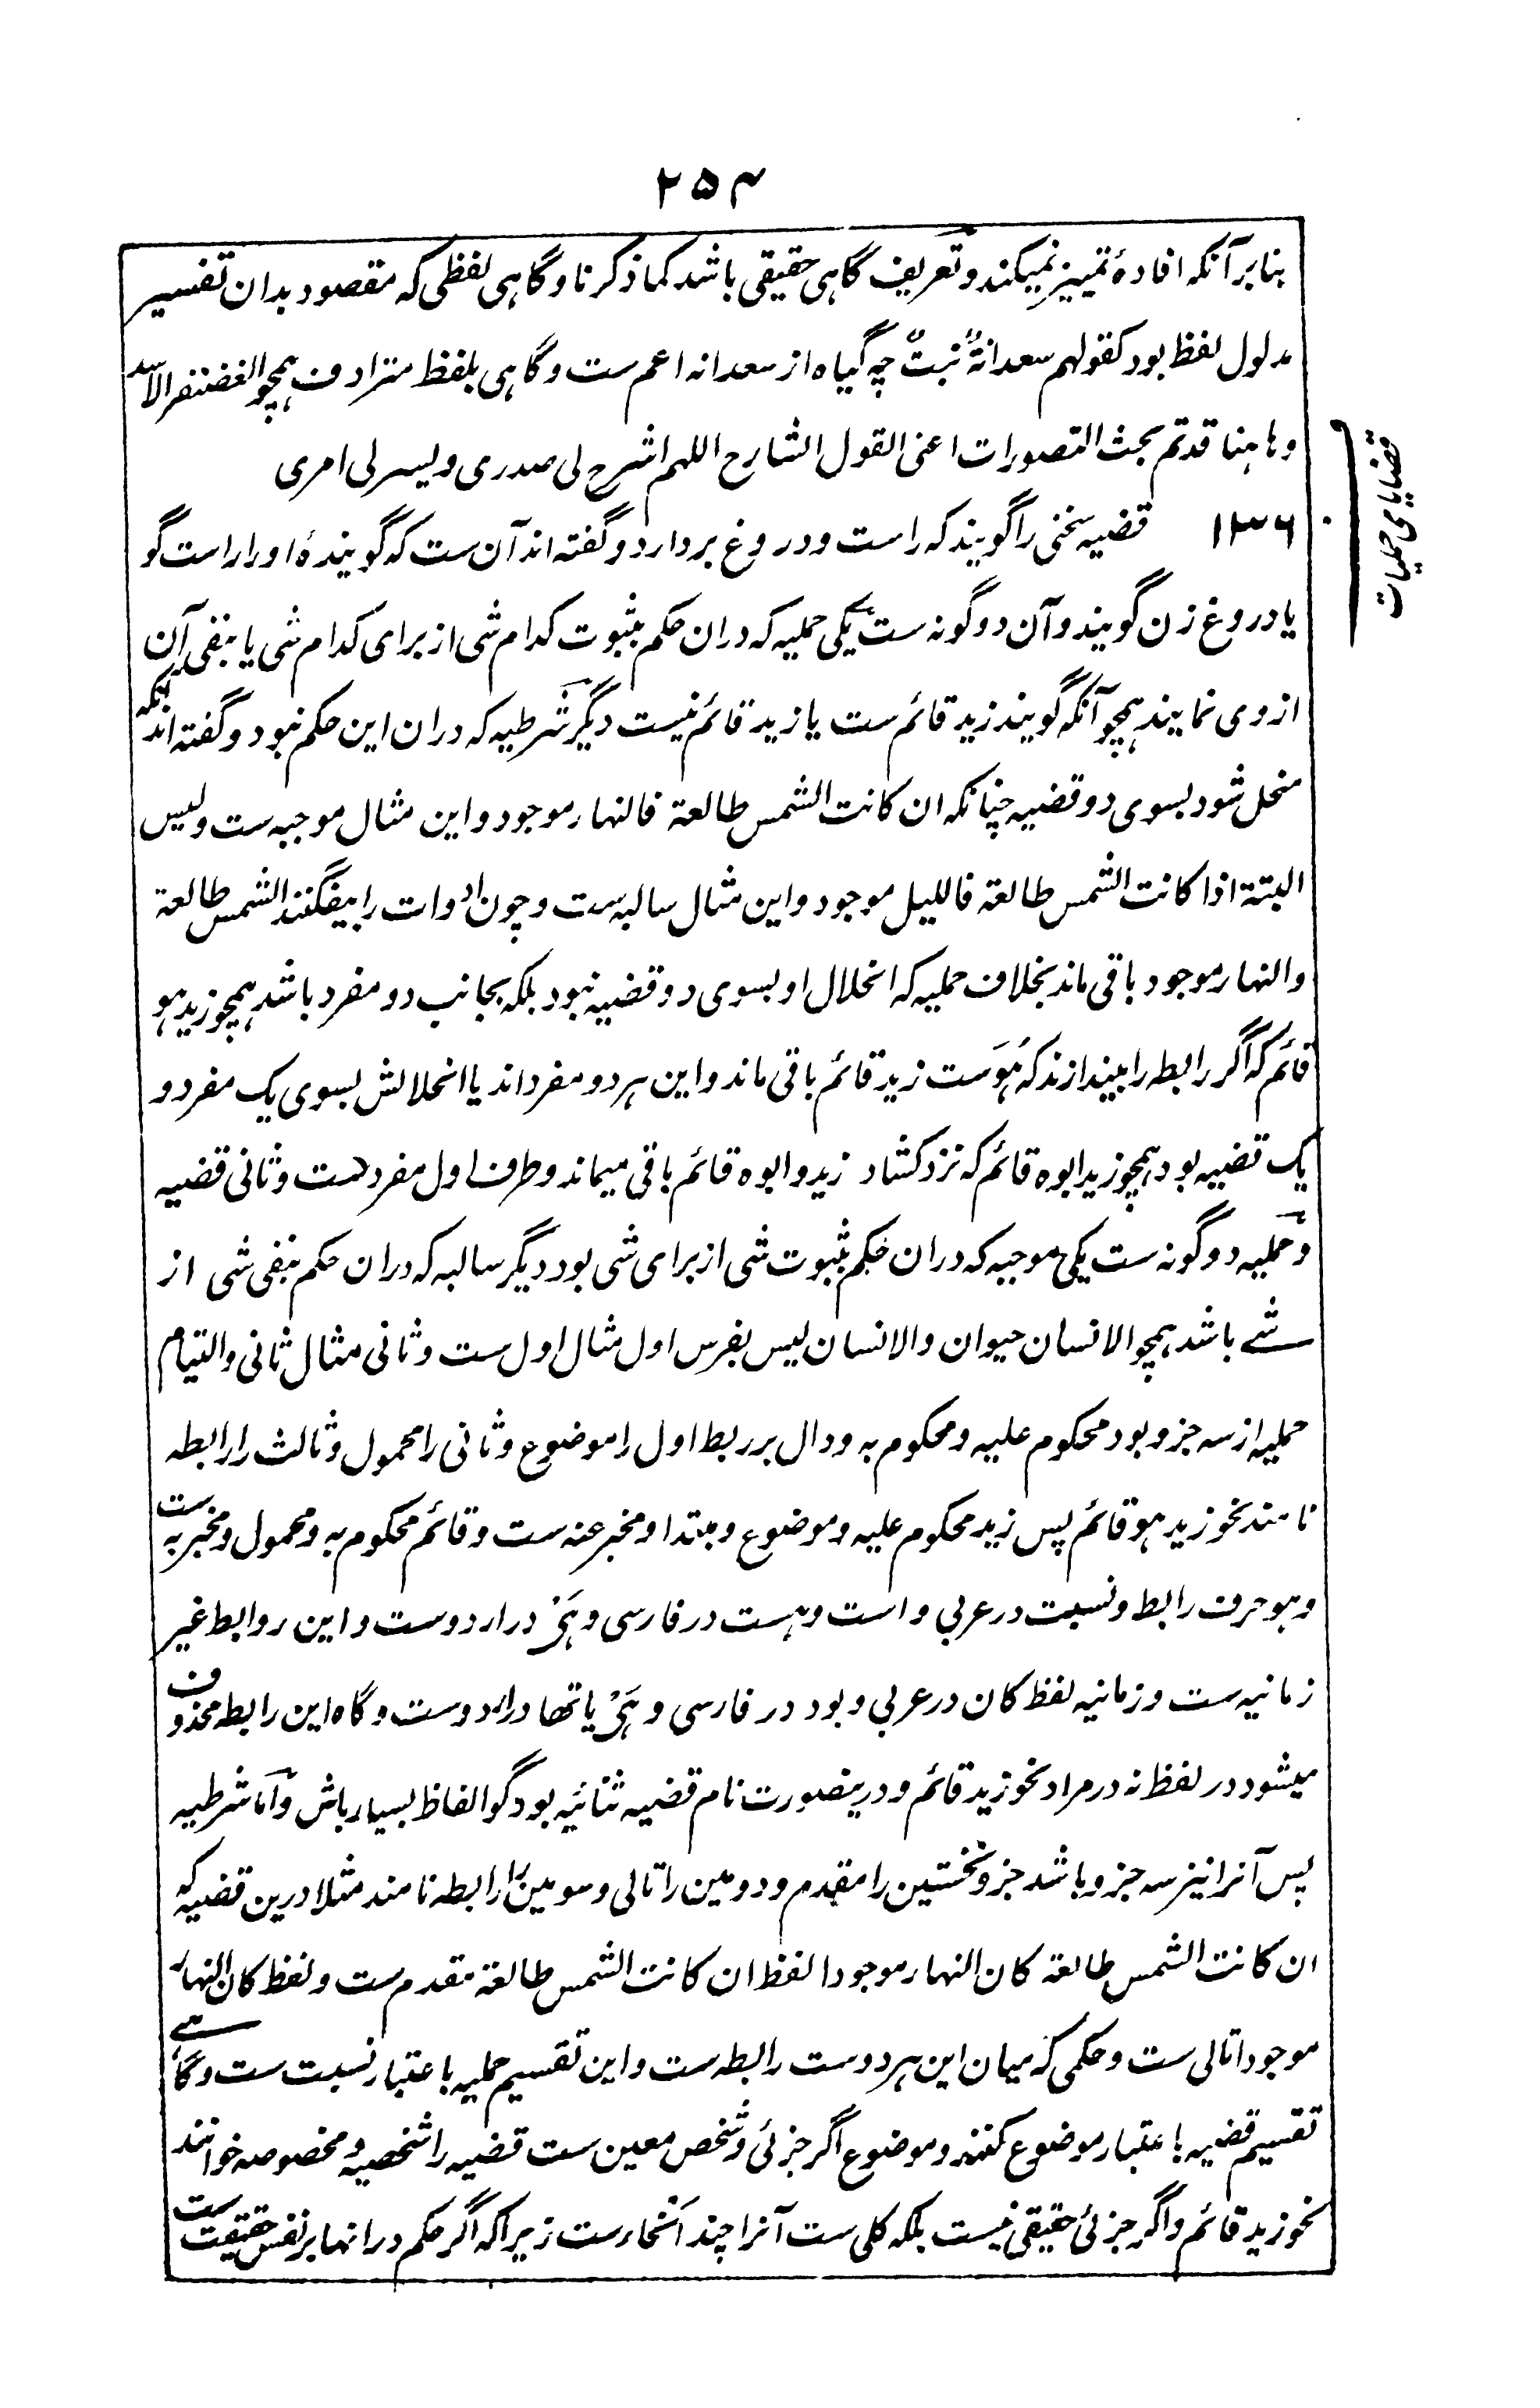 ۲۵۴
بنابر آنکه افادۂ تمییز نمیکند و تعریف گاہی حقیقی باشد کما ذکرنا و گاہی لفظی که مقصود بدان تفسیر
مدلول لفظ بود کقولهم سعدانةٌ نبتٌ چه گیاه از سعدانه اعم ست و گاہی بلفظ مترادف ہمچو الغضنفر الاسد
وہاہنا قد تم بحث التصورات اعنی القول الشارح اللهم اشرح لی صدری ویسر لی امری
قضایای حملیات
۱۳۶ قضیه سخنی را گویند که راست و دروغ بردارد و گفته اند آن ست که گویندۂ او را راست گو
یا دروغ زن گویند و آن دو گونه ست یکی حملیه که دران حکم بثبوت کدام شی از برای کدام شی یا بنفی آن
از وی نمایند ہمچو آنکه گویند زید قائم ست یا زید قائم نیست دیگر شرطیه که دران این حکم نبود و گفته اند آنکه
منحل شود بسوی دو قضیه چنانکه ان کانت الشمس طالعة فالنهار موجود و این مثال موجبه ست و لیس
البتة اذا کانت الشمس طالعة فاللیل موجود و این مثال سالبه ست و چون ادوات را بیفگنند الشمس طالعة
والنهار موجود باقی ماند بخلاف حملیه که انحلال او بسوی دو قضیه نبود بلکه بجانب دو مفرد باشد ہمچو زید ہو
قائم که اگر رابطه را بیندازند که ہُوَ ست زید قائم باقی ماند و این ہر دو مفرد اند یا انحلالش بسوی یک مفرد و
یک قضیه بود ہمچو زید ابوه قائم که نزد کشاد زید و ابوه قائم باقی میماند و طرف اول مفرد ست و ثانی قضیه
و حملیه دو گونه ست یکی موجبه که دران حکم بثبوت شی از برای شی بود دیگر سالبه که دران حکم بنفی شی از
شے باشد ہمچو الانسان حیوان والانسان لیس بفرس اول مثال اول ست و ثانی مثال ثانی و التیام
حملیه از سه جزو بود محکوم علیه و محکوم به و دال بر ربط اول را موضوع و ثانی را محمول و ثالث را رابطه
نامند نحو زید ہو قائم پس زید محکوم علیه و موضوع و مبتدا و مخبر عنه ست و قائم محکوم به و محمول و مخبر به ست
و ہو حرف رابط و نسبت در عربی و است و ہست در فارسی و ہَیْ در اردو ست و این روابط غیر
زمانیه ست و زمانیه لفظ کان در عربی و بود در فارسی و ہَیْ یا تھا در اردو ست و گاه این رابطه محذوف
میشود در لفظ نه در مراد نحو زید قائم و درینصورت نام قضیه ثنائیه بود گو الفاظ بسیار باش و اما شرطیه
پس آنرا نیز سه جزو باشد جزو نخستین را مقدم و دومین را تالی و سومین را رابطه نامند مثلا درین قضیه که
ان کانت الشمس طالعة کان النهار موجودا لفظ ان کانت الشمس طالعة مقدم ست و لفظ کان النهار
موجودا تالی ست و حکمی که میان این ہر دو ست رابطه ست و این تقسیم حملیه باعتبار نسبت ست و گاہے
تقسیم قضیه باعتبار موضوع کنند و موضوع اگر جزئی و شخص معین ست قضیه را شخصیه و مخصوصه خوانند
نحو زید قائم و اگر جزئی حقیقی نیست بلکه کلی ست آنرا چند انحاء ست زیرا که اگر حکم درانها بر نفس حقیقت ست